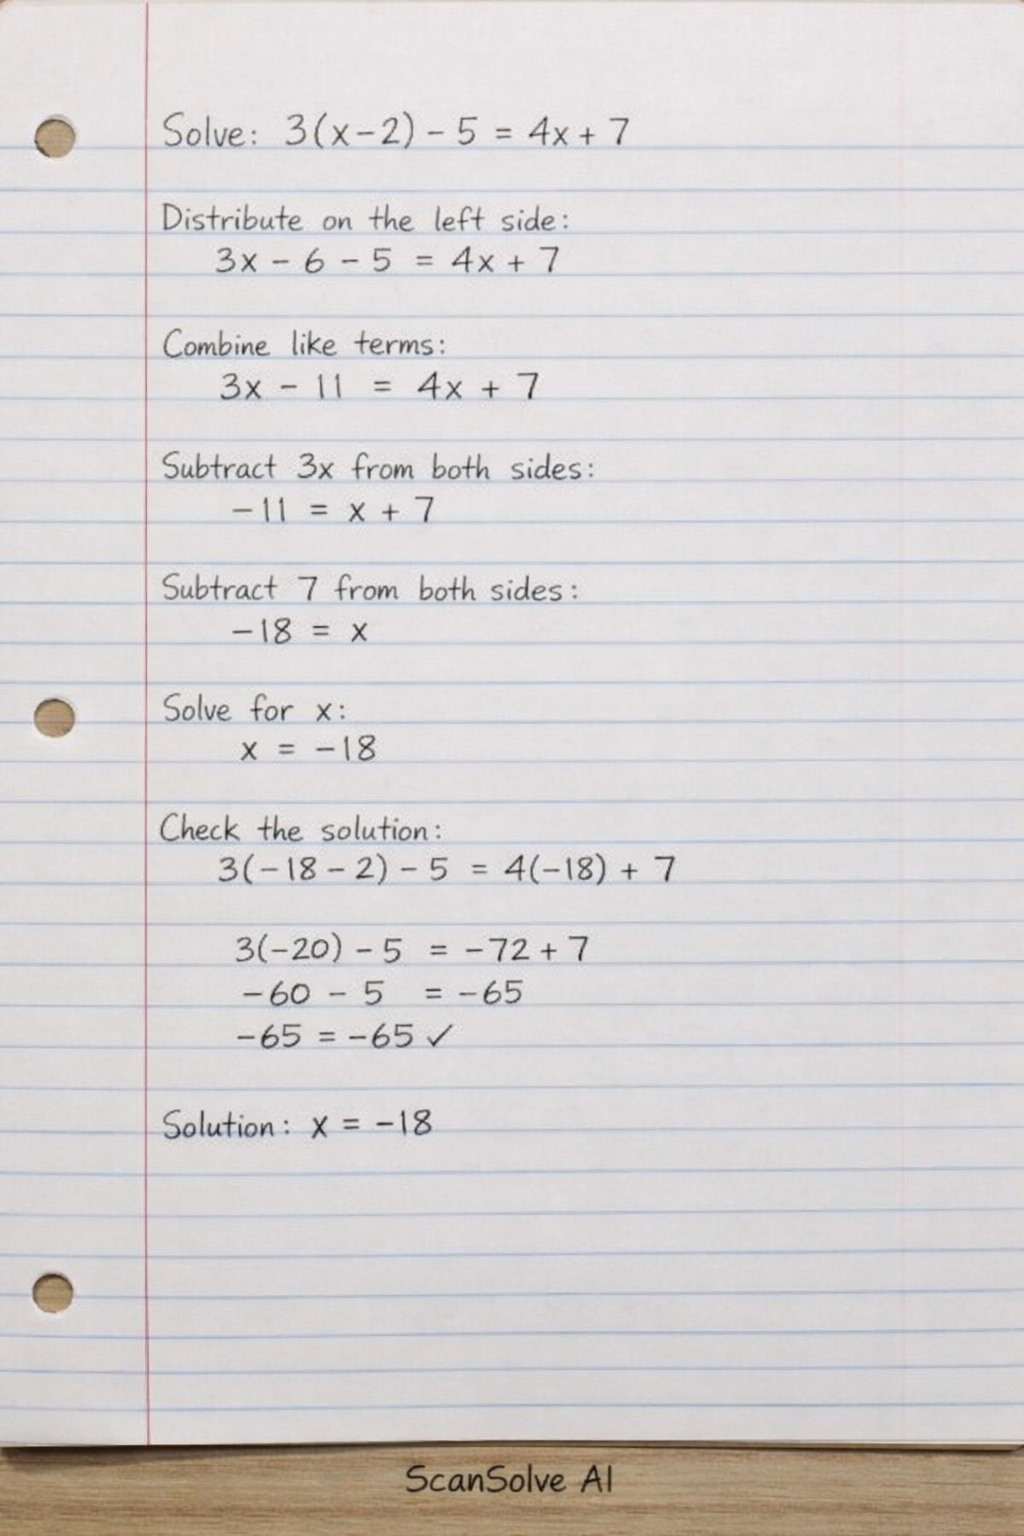 Solve: 3(x-2) - 5 = 4x + 7
Distribute on the left side:
3x - 6 - 5 = 4x + 7
Combine like terms:
3x - 11 = 4x + 7
Subtract 3x from both sides:
-11 = x + 7
Subtract 7 from both sides:
-18 = x
Solve for x:
x = -18
Check the solution:
3(-18 - 2) - 5 = 4(-18) + 7
3(-20) - 5 = -72 + 7
-60 - 5 = -65
-65 = -65 ✓
Solution: x = -18
ScanSolve AI